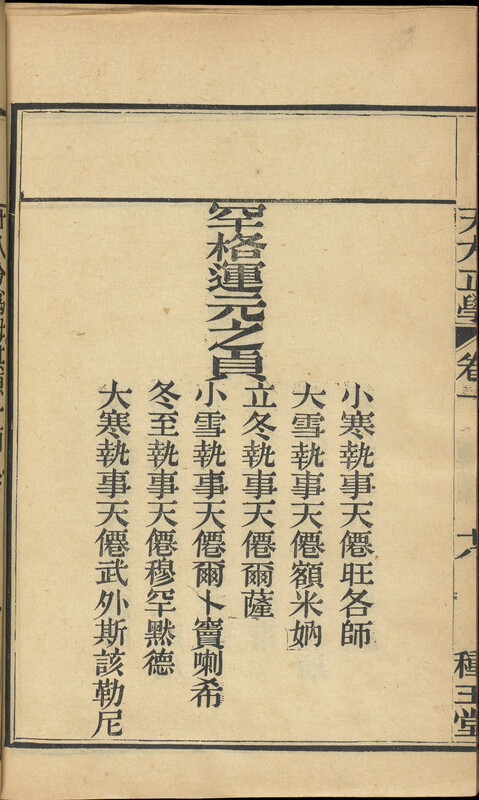 天方正學 卷一
種玉堂
空格運元之貞
小寒執事天僊旺各師
大雪執事天僊額米妠
立冬執事天僊爾薩
小雪執事天僊爾卜竇喇希
冬至執事天僊穆罕黙德
大寒執事天僊武外斯該勒尼